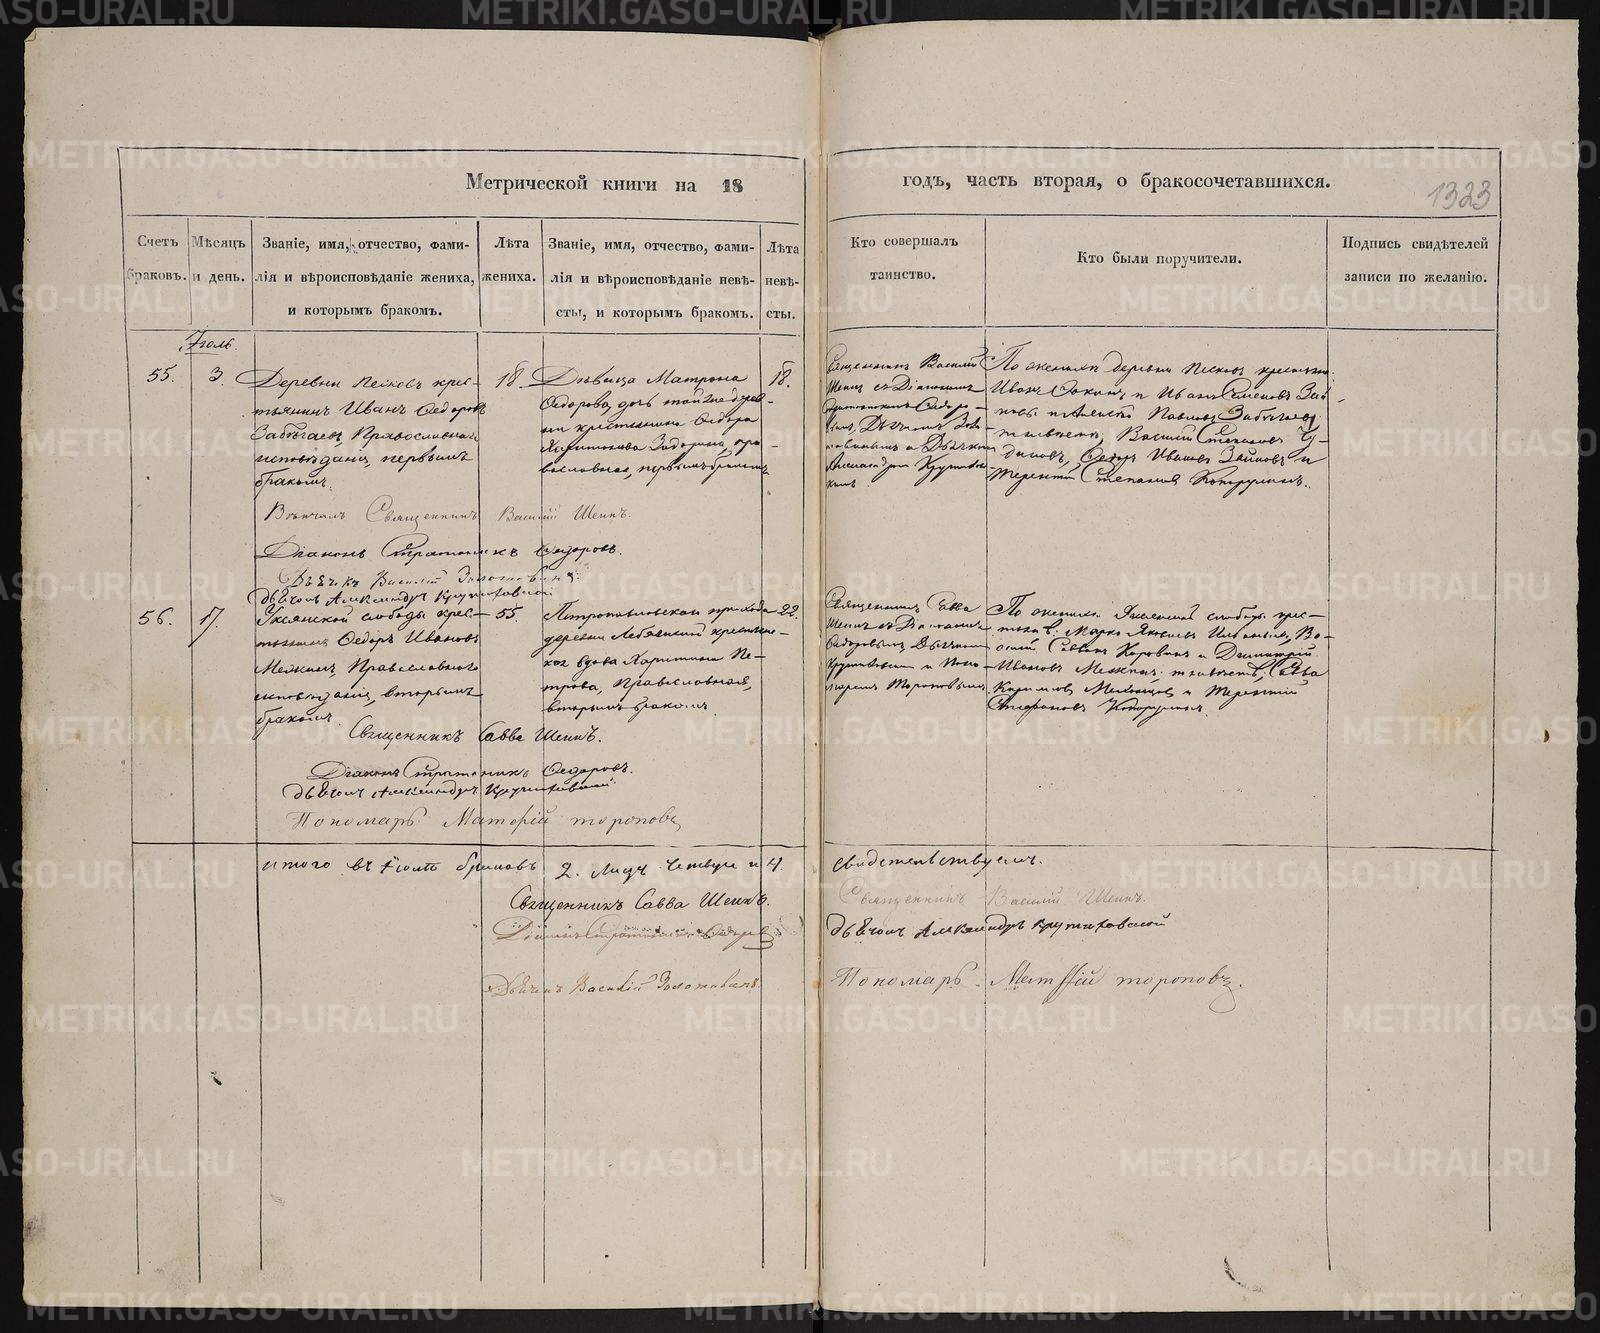 Метрической книги на 18
годъ, часть вторая, о бракосочетавшихся.
1323
Счетъ браковъ.
Мѣсяцъ и день.
Званіе, имя, отчество, фами-
лія и вѣроисповѣданіе жениха,
и которымъ бракомъ.
Лѣта
жениха.
Званіе, имя, отчество, фами-
лія и вѣроисповѣданіе невѣ-
сты, и которымъ бракомъ.
Лѣта
невѣ-
сты.
Кто совершалъ
таинство.
Кто были поручители.
Подпись свидѣтелей
записи по желанію.
Іюль.
55.
3.
Деревни Песковъ крес-
тьянинъ Иванъ Ѳедоровъ
Забѣгаевъ, Православнаго
исповѣданія, первымъ
бракомъ.
18.
Дѣвица Матрона
Ѳедорова, дочь той же дерев-
ни крестьянина Ѳедора
Харитонова Задорина, пра-
вославная, первымъ бракомъ
18.
Священникъ Василій
Шеинъ съ Діакономъ
Стратоникомъ Ѳедоро-
вымъ, Дьячкомъ Зо-
лотавинымъ и Дьячкомъ
Александромъ Крутиховс-
кимъ
По женихѣ деревни Песковъ крестьяне
Иванъ и Иванъ Семеновъ
и Алексѣй Павловъ Забѣгаевъ
по невѣстѣ, Василій Степановъ Чу-
диновъ, Ѳедоръ Ивановъ Зайковъ и
Терентій Степановъ
Вѣнчалъ Священникъ Василій Шеинъ.
Діаконъ Стратоникъ Ѳедоровъ.
Дьячекъ Василій Золотавинъ.
Дьячокъ Александръ Крутиховской
56.
17.
Уксянской слободы крес-
тьянинъ Ѳедоръ Ивановъ
Межинъ, Православнаго
исповѣданія, вторымъ
бракомъ.
55.
Петропавловскаго прихода
деревни Лебяжской крестьянс-
кая вдова Харитина Пе-
трова, Православная,
вторымъ бракомъ
22.
Священникъ Савва
Шеинъ съ Діакономъ
Ѳедоровымъ, Дьячкомъ
Крутиховскимъ и Поно-
маремъ Тороповымъ.
По женихѣ Уксянской слободы крес-
тьяне: Марко Яковлевъ
Саввинъ Коровинъ и Димитрій
Ивановъ Межинъ; по невѣстѣ, Савва
и Терентій
Стефановъ
Священникъ Савва Шеинъ.
Діаконъ Стратоникъ Ѳедоровъ.
Дьячокъ Александръ Крутиховской
Пономарь Матѳій Тороповъ
Итого въ Іюлѣ браковъ 2. лицъ четверо и 4.
свидетельствуемъ.
Священникъ Савва Шеинъ.
Священникъ Василій Шеинъ.
Діаконъ Стратоникъ Ѳедоровъ
Дьячокъ Александръ Крутиховской
Дьячекъ Василій Золотавинъ.
Пономарь Матѳій Тороповъ.
METRIKI.GASO-URAL.RU